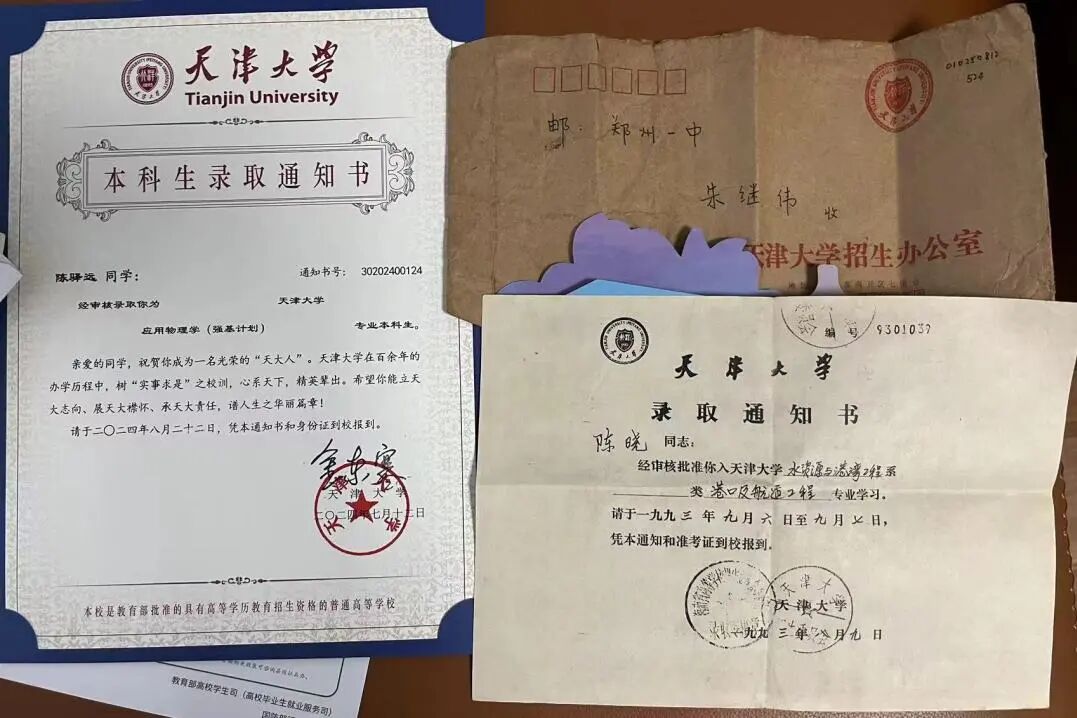 天津大学
Tianjin University
本科生录取通知书
陈驿远 同学：
通知书号： 30202400124
经审核录取你为 天津大学
应用物理学（强基计划） 专业本科生。
亲爱的同学，祝贺你成为一名光荣的“天大人”。天津大学在百余年的
办学历程中，树“实事求是”之校训，心系天下，精英辈出。希望你能立天
大志向、展天大襟怀、承天大责任，谱人生之华丽篇章！
请于二〇二四年八月二十二日，凭本通知书和身份证到校报到。
金东寒
天津大学
二〇二四年七月十二日
本校是教育部批准的具有高等学历教育招生资格的普通高等学校
教育部高校学生司（高校毕业生就业服务司）
010250812
524
邮：郑州一中
朱继伟 收
天津大学招生办公室
编号 9301039
天津大学
录取通知书
陈晓 同志：
经审核批准你入天津大学水资源与港湾工程系
类港口及航道工程 专业学习。
请于一九九三年九月六日至九月七日，
凭本通知和准考证到校报到。
天津大学
一九九三年八月九日